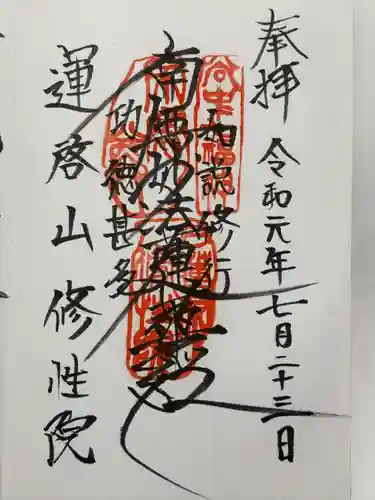 奉拝
令和元年七月二十三日
如説修行
南無妙法蓮華経
功徳甚多
運啓山修性院